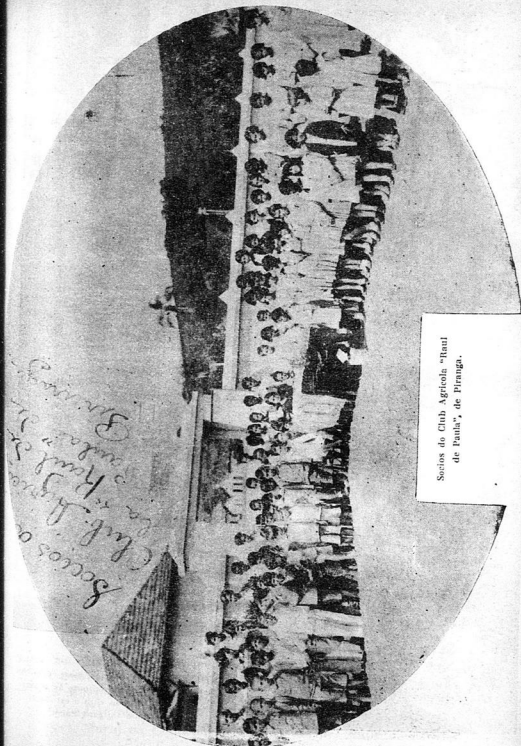 Socios do
Club Agrico
la "Raul de
Paula" de
Piranga
Socios do Club Agricola "Raul
de Paula", de Piranga.